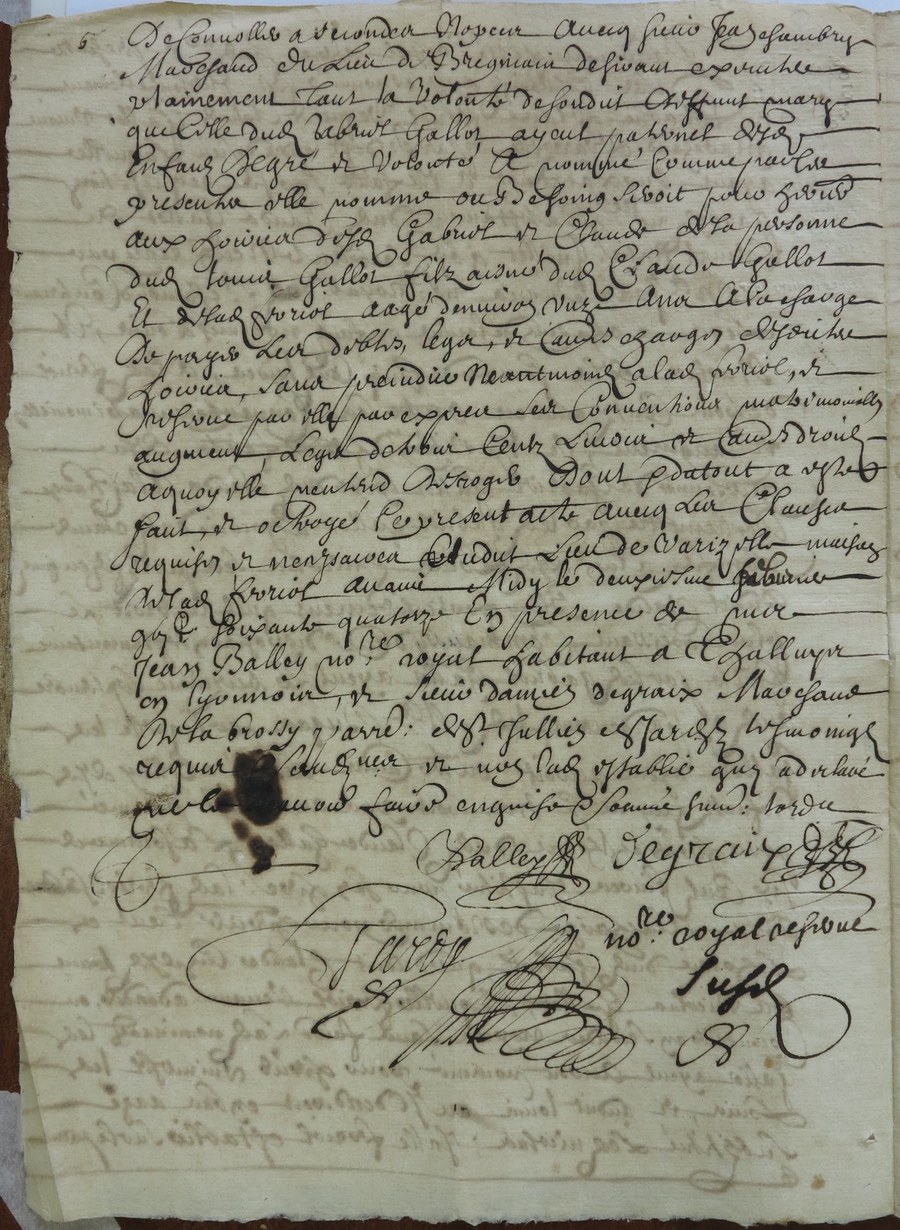 De Convoller a secondes Nopces Avecq sieur Jean chambry
Marchand du Lieu de Bregnain desirant executter
plainement Tant la Volonté desondit deffunt mary
que Celle dud Gabriel Gallot ayeul paternel desd
Enfans De gré et Volonté A nommé Comme par les
presentes elle nomme ou Besoing seroit pour heritier
aux hoiries desd Gabriel et Claude de la personne
dud Louis Gallot filz aisné dud Claude Gallot
Et de lad feriol aagé denviron unze Ans A la charge
De payer Les debtes, legat, et autres charges desdites
hoiries, sans preiudice Neantmoins a lad feriol, et
reserve par elle par exprès Ses Conventions matrimonialles
augment, Legat de trois Centz Livres et autres droictz
a quoy elle nentend desroger Dont du tout a esté
fait, et octroyé Le present acte Avecq Les Clauses
requises et necessaires Audit Lieu de Varizelle maison
de lad feriol avant Midy le deuxiesme febvrier
gbi c soixante quatorze En presence de mre
Jean Balley no.re royal habitant a Challuyer
en lyonnois, et sieur damien degraix Marchand
de la brossy parre: de St Jullien tesmoingz
requis et non lad establie quy a declaré
ne le scavoir faire enquise Sommé suiv: lordre
Balley degraix
Tardy no.re royal reservé
Susd